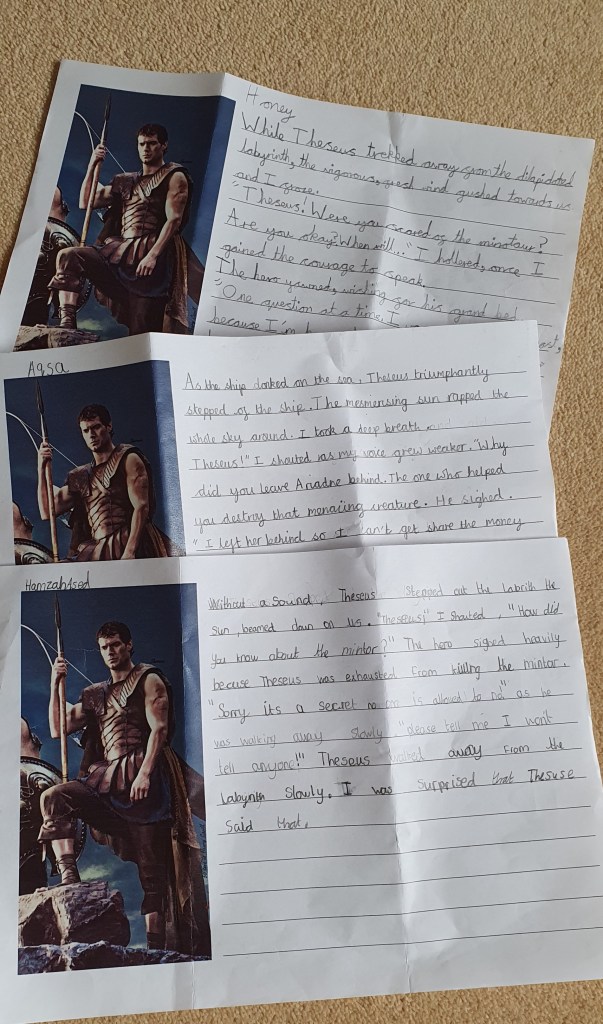 Honey
While Theseus trekked away from the dilapidated
labyrinth, the vigorous, great wind gushed towards us
and I froze.
"Theseus! Were you scared of the minotaur?
Are you okay? When will..." I hollered, once I
gained the courage to speak.
The hero yawned, wishing for his grand bed
"One question at a time, I
because I'm
Aqsa
As the ship docked on the sea, Theseus triumphantly
stepped of the ship. The mesmersing sun rapped the
whole sky around. I took a deep breath.
Theseus!" I shouted as my voice grew weaker. "Why
did you leave Ariadne behind. The one who helped
you destroy that menacing creature. He sighed.
"I left her behind so I can't get share the money
Hamzah Ased
Without a sound, Theseus stepped out the labrith the
sun beamed down on us. "Theseus!" I shouted, "How did
you know about the mintor?" The hero signed heavily
becuse Theseus was exhausted from killing the mintor.
"Sorry its a secret no on is allowed to no" as he
was walking away slowly "please tell me I wont
tell anyone!" Theseus walked away from the
labyrith slowly. I was surprised that Thesuse
said that.